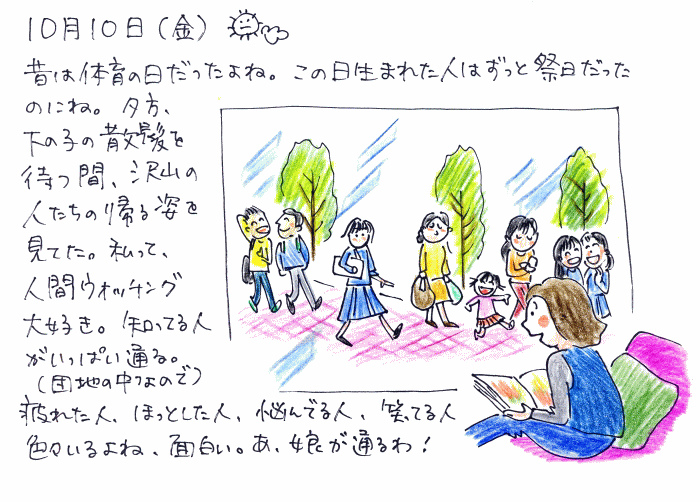 10月10日(金)
昔は体育の日だったよね。この日生まれた人はずっと祭日だった
のにね。夕方、
下の子の散髪を
待つ間、沢山の
人たちの帰る姿を
見てた。私って、
人間ウォッチング
大好き。知ってる人
がいっぱい通る。
(団地の中なので)
疲れた人、ほっとした人、悩んでる人、笑ってる人
色々いるよね、面白い。あ、娘が通るわ!